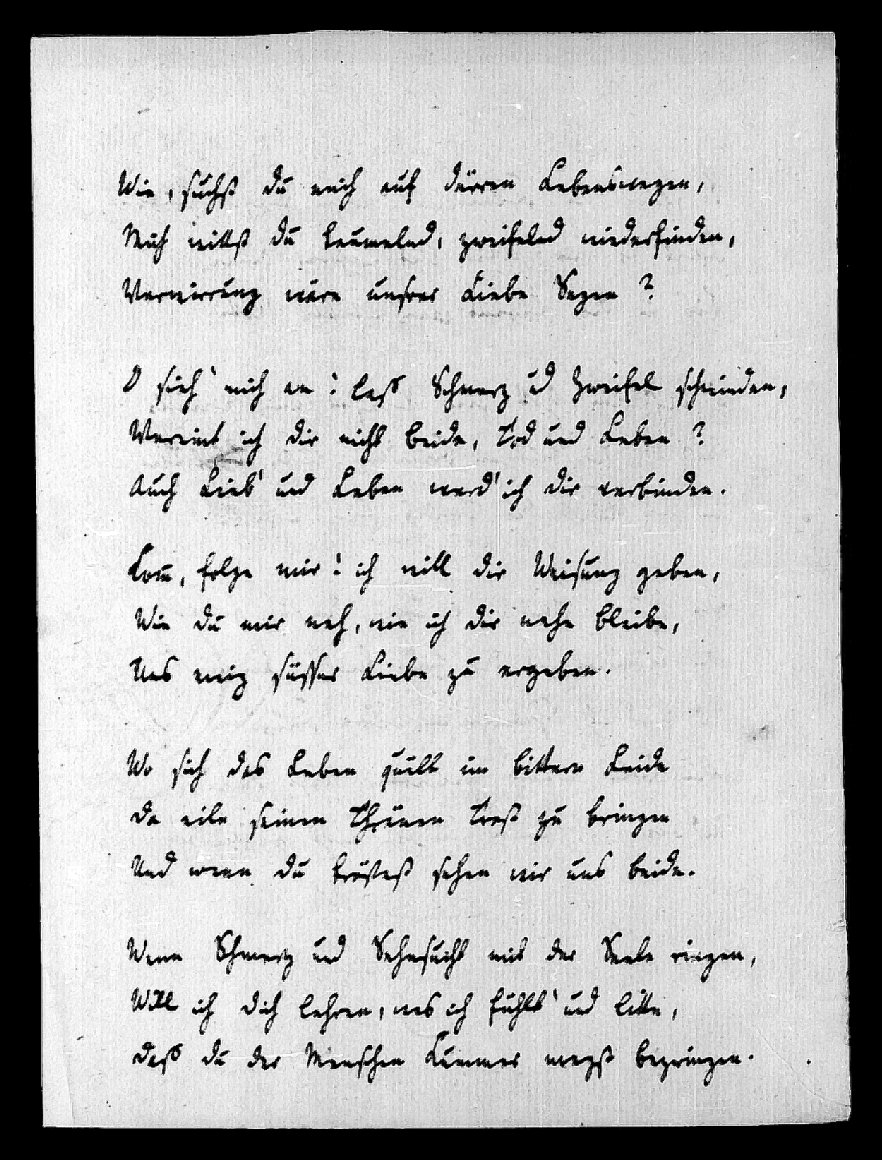 Wie, suchst du mich auf dürren Lebenswegen,
Mich willst du taumelnd, zweifelnd wiederfinden,
Verwirrung wäre unsrer Liebe Segen?
O sieh' mich an! laß Schmerz ud Zweifel schwinden,
Vereint ich dir nicht beide, Tod und Leben?
Auch Lieb' und Leben werd' ich dir verbinden.
Kom̅, folge mir! ich will dir Weisung geben,
Wie du mir nah, wie ich dir nahe bleibe,
Uns ewig süsser Liebe zu ergeben.
Wo sich das Leben quält im bittern Leide
Da eile seinen Thränen Trost zu bringen
Und wenn du tröstest sehen wir uns beide.
Wenn Schmerz und Sehnsucht mit der Seele ringen,
Will ich dich lehren, was ich fühlt' und litte,
Daß du der Menschen Kummer magst bezwingen.